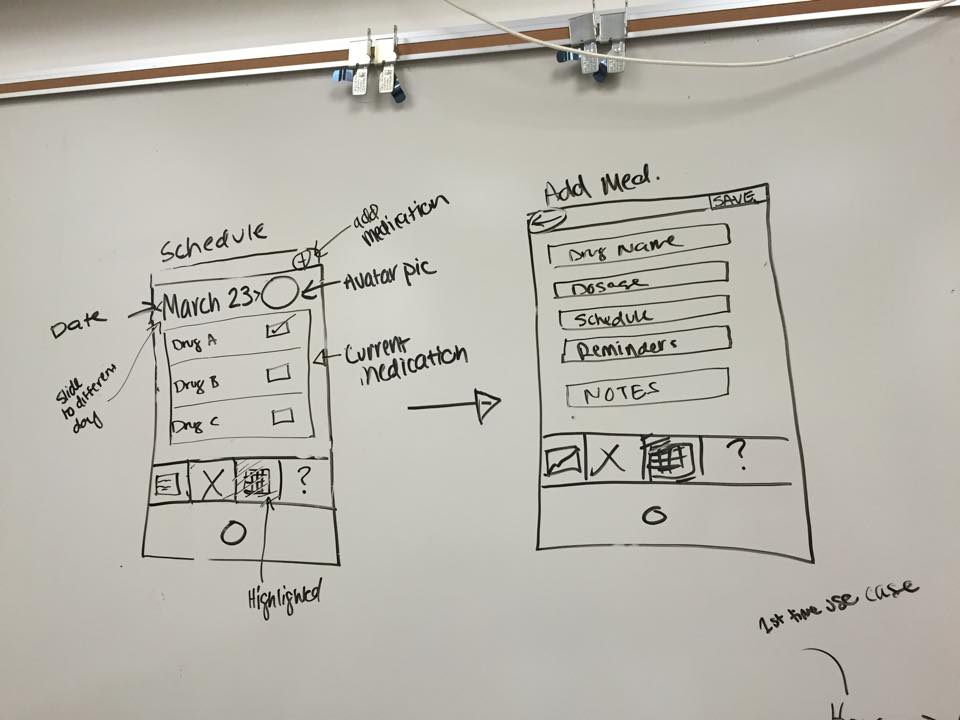 Schedule
add
medication
Date
March 23>
Avatar pic
Slide
to different
day
Drug A
Drug B
Drug C
Current
medication
X
?
Highlighted
Add Med.
SAVE
Drug Name
Dosage
Schedule
Reminders
NOTES
X
?
1st time use case